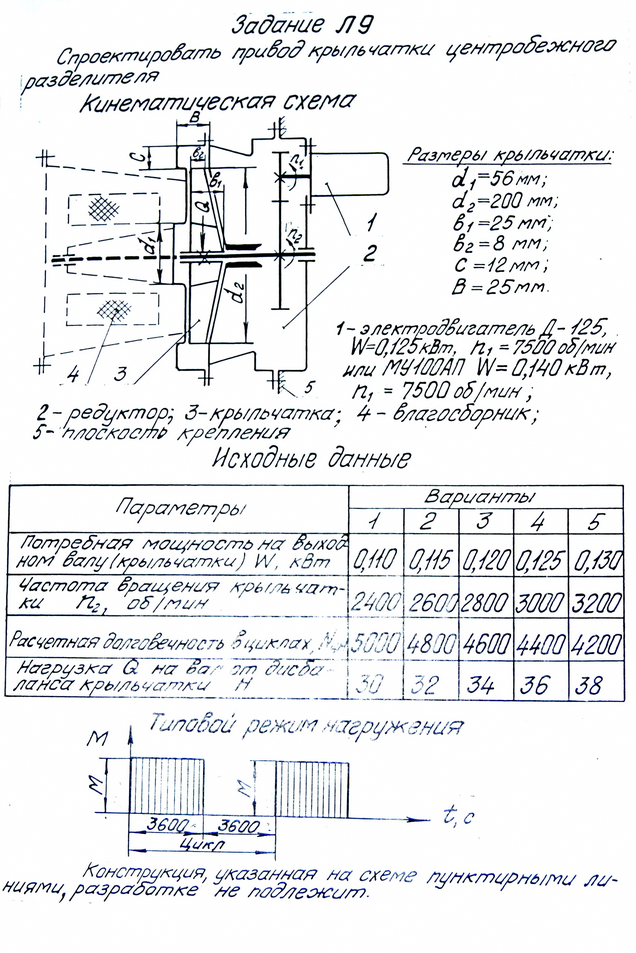 Задание Л9
Спроектировать привод крыльчатки центробежного
разделителя
Кинематическая схема
B
C
в₂
в₁
Q
n₁
n₂
d₁
d₂
1
2
3
4
5
Размеры крыльчатки:
d₁=56 мм;
d₂=200 мм;
в₁=25 мм;
в₂=8 мм;
C=12 мм;
B=25 мм.
1-электродвигатель Д-125,
W=0,125 кВт, n₁=7500 об/мин
или МУ100АП W=0,140 кВт,
n₁=7500 об/мин;
2-редуктор; 3-крыльчатка; 4-влагосборник;
5-плоскость крепления
Исходные данные
Параметры Варианты
1 2 3 4 5
Потребная мощность на выход-
ном валу (крыльчатки) W, кВт 0,110 0,115 0,120 0,125 0,130
Частота вращения крыльчат-
ки n₂, об/мин 2400 2600 2800 3000 3200
Расчетная долговечность в циклах, 5000 4800 4600 4400 4200
Нагрузка Q на вал от дисба-
ланса крыльчатки Н 30 32 34 36 38
Типовой режим нагружения
M
M M
t, с
3600 3600
Цикл
Конструкция, указанная на схеме пунктирными ли-
ниями, разработке не подлежит.